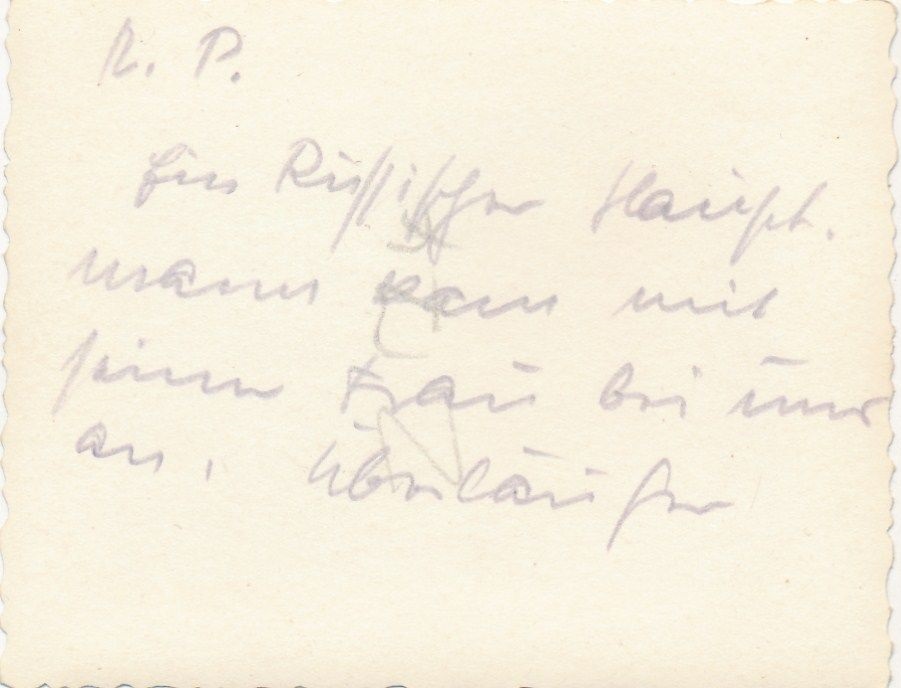 R. P.
Ein Russischer Haupt.
mann kam mit
seiner Frau bei uns
an. Überläufer